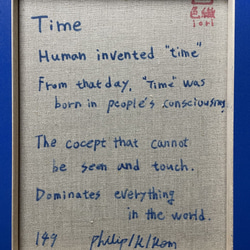 Time
Human invented "time"
From that day, "Time" was
born in people's consciousness
The cocept that cannot
be seen and touch.
Dominates everything
in the world.
149
iori